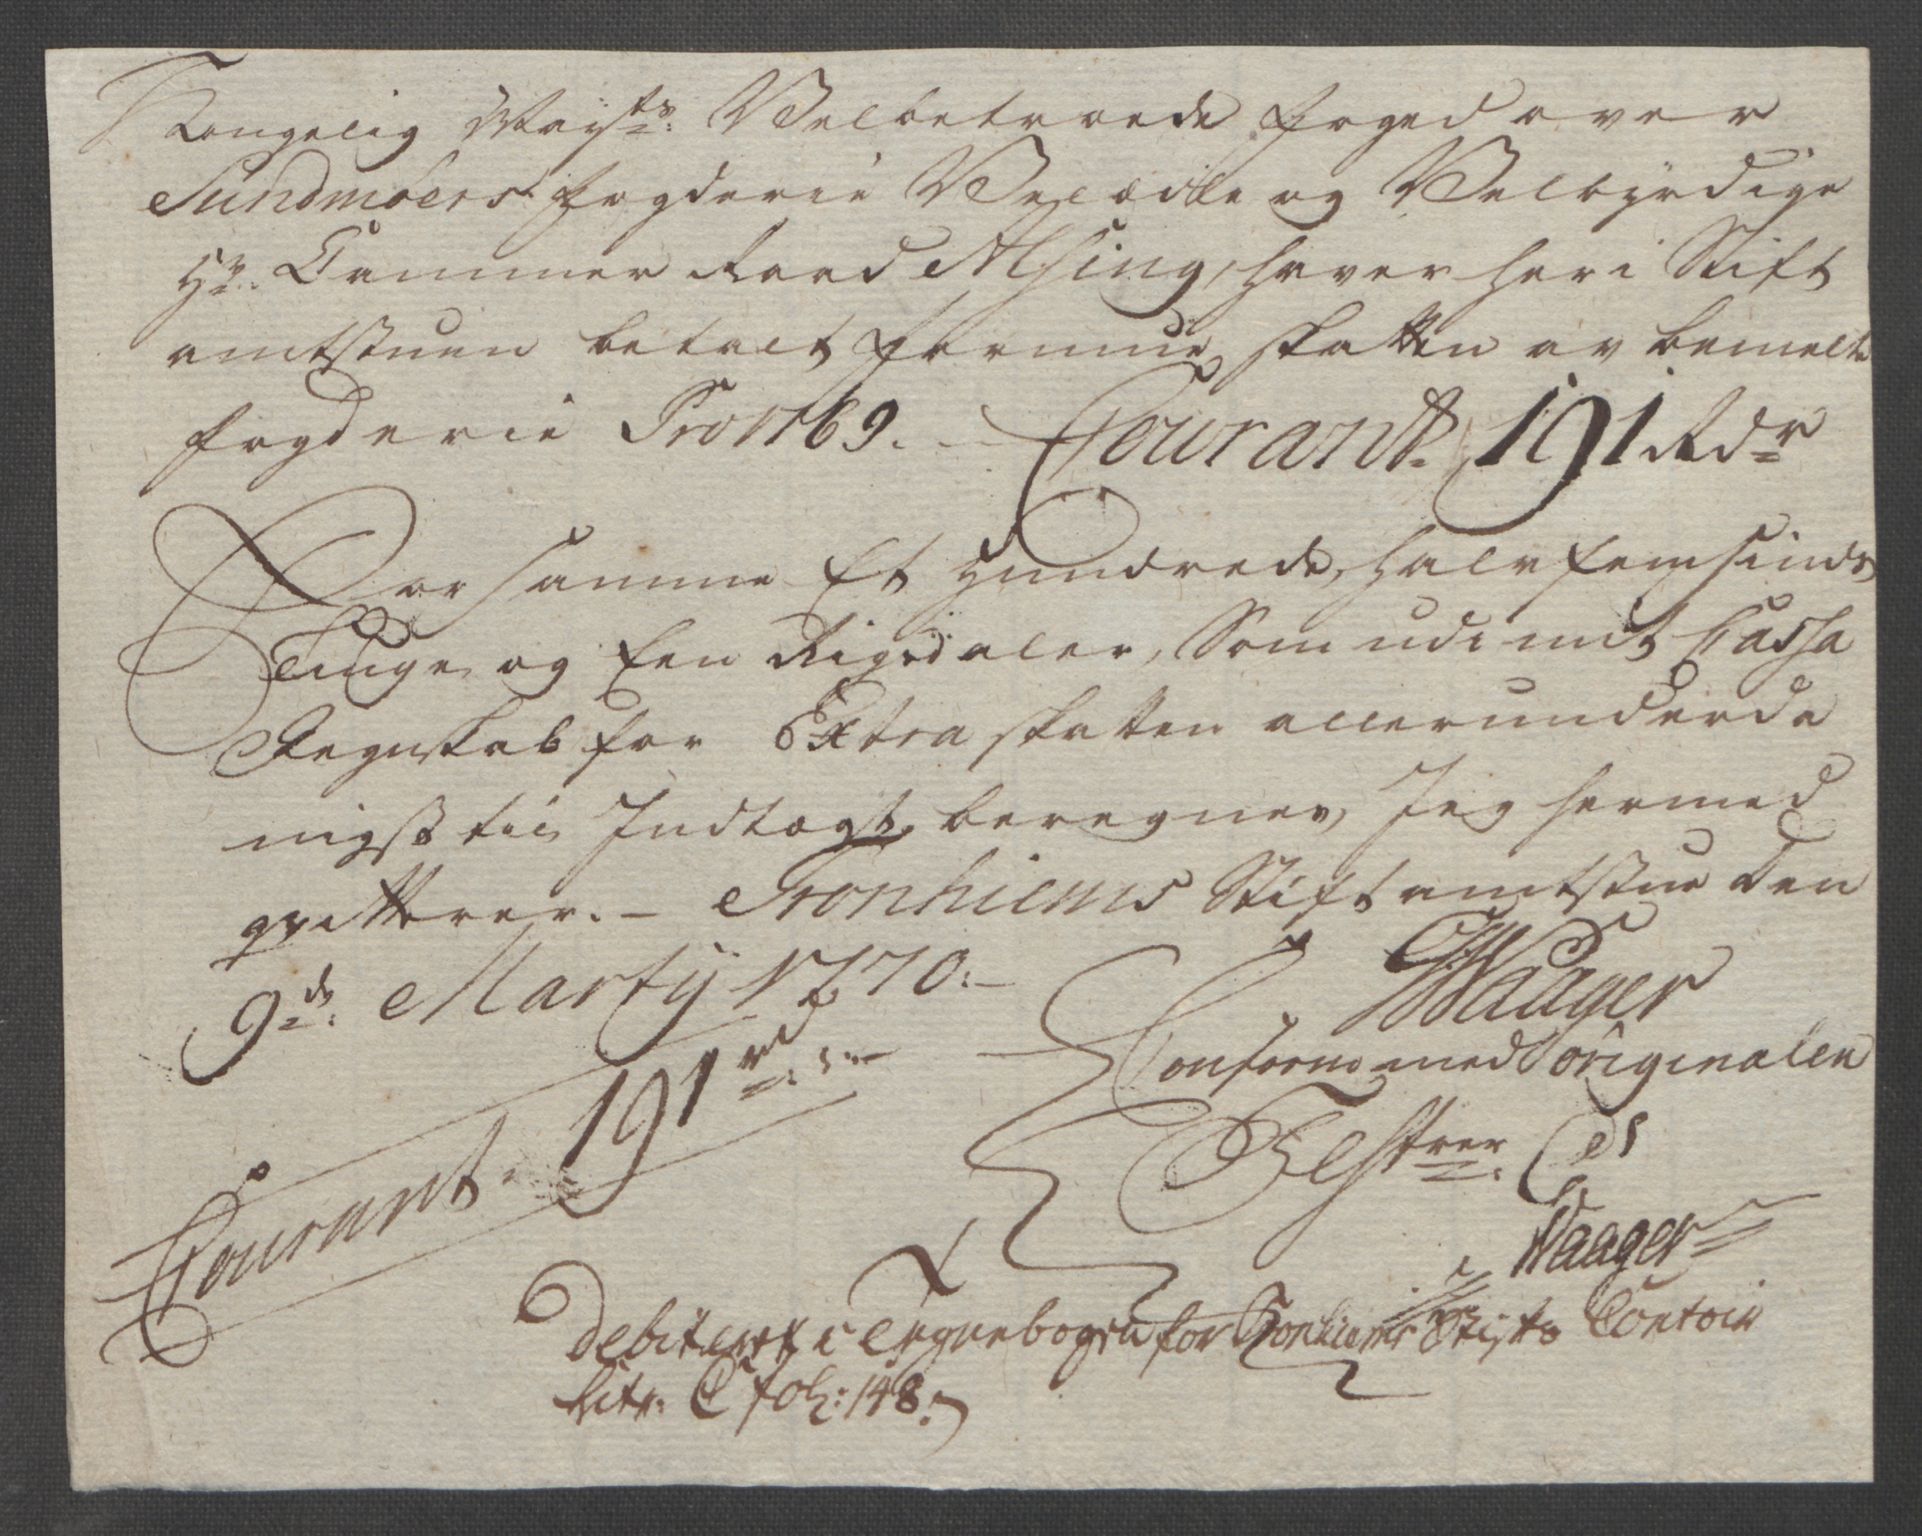 Kongelig Mayts: Velbetroede foged over
Sundmøers fogderie Velædle og Velbyrdige
Hr. Cammer Raad Alsing, haver her i Stift
amtstuen betalt formue skatten av bemelte
fogderie Pro 1769. – Courant 191 Rdr
Der samme Et Hundrede, halvfemsinds
Tiuge og Een Rigsdaler, Som udi mit Cassa
Regnskab for Extra skatten allerunderda
nigst til Indtægt beregnes, Jeg hermed
qvitterer. – Tronhiems Stiftamtstue den
9de Martij 1770. –
Waager
Conform med originalen
Testrer
Waager
Courant 191 rd
debiteret i Tegnebogen for Tronhiems Stifts Contoir
Litr. C fol: 148.